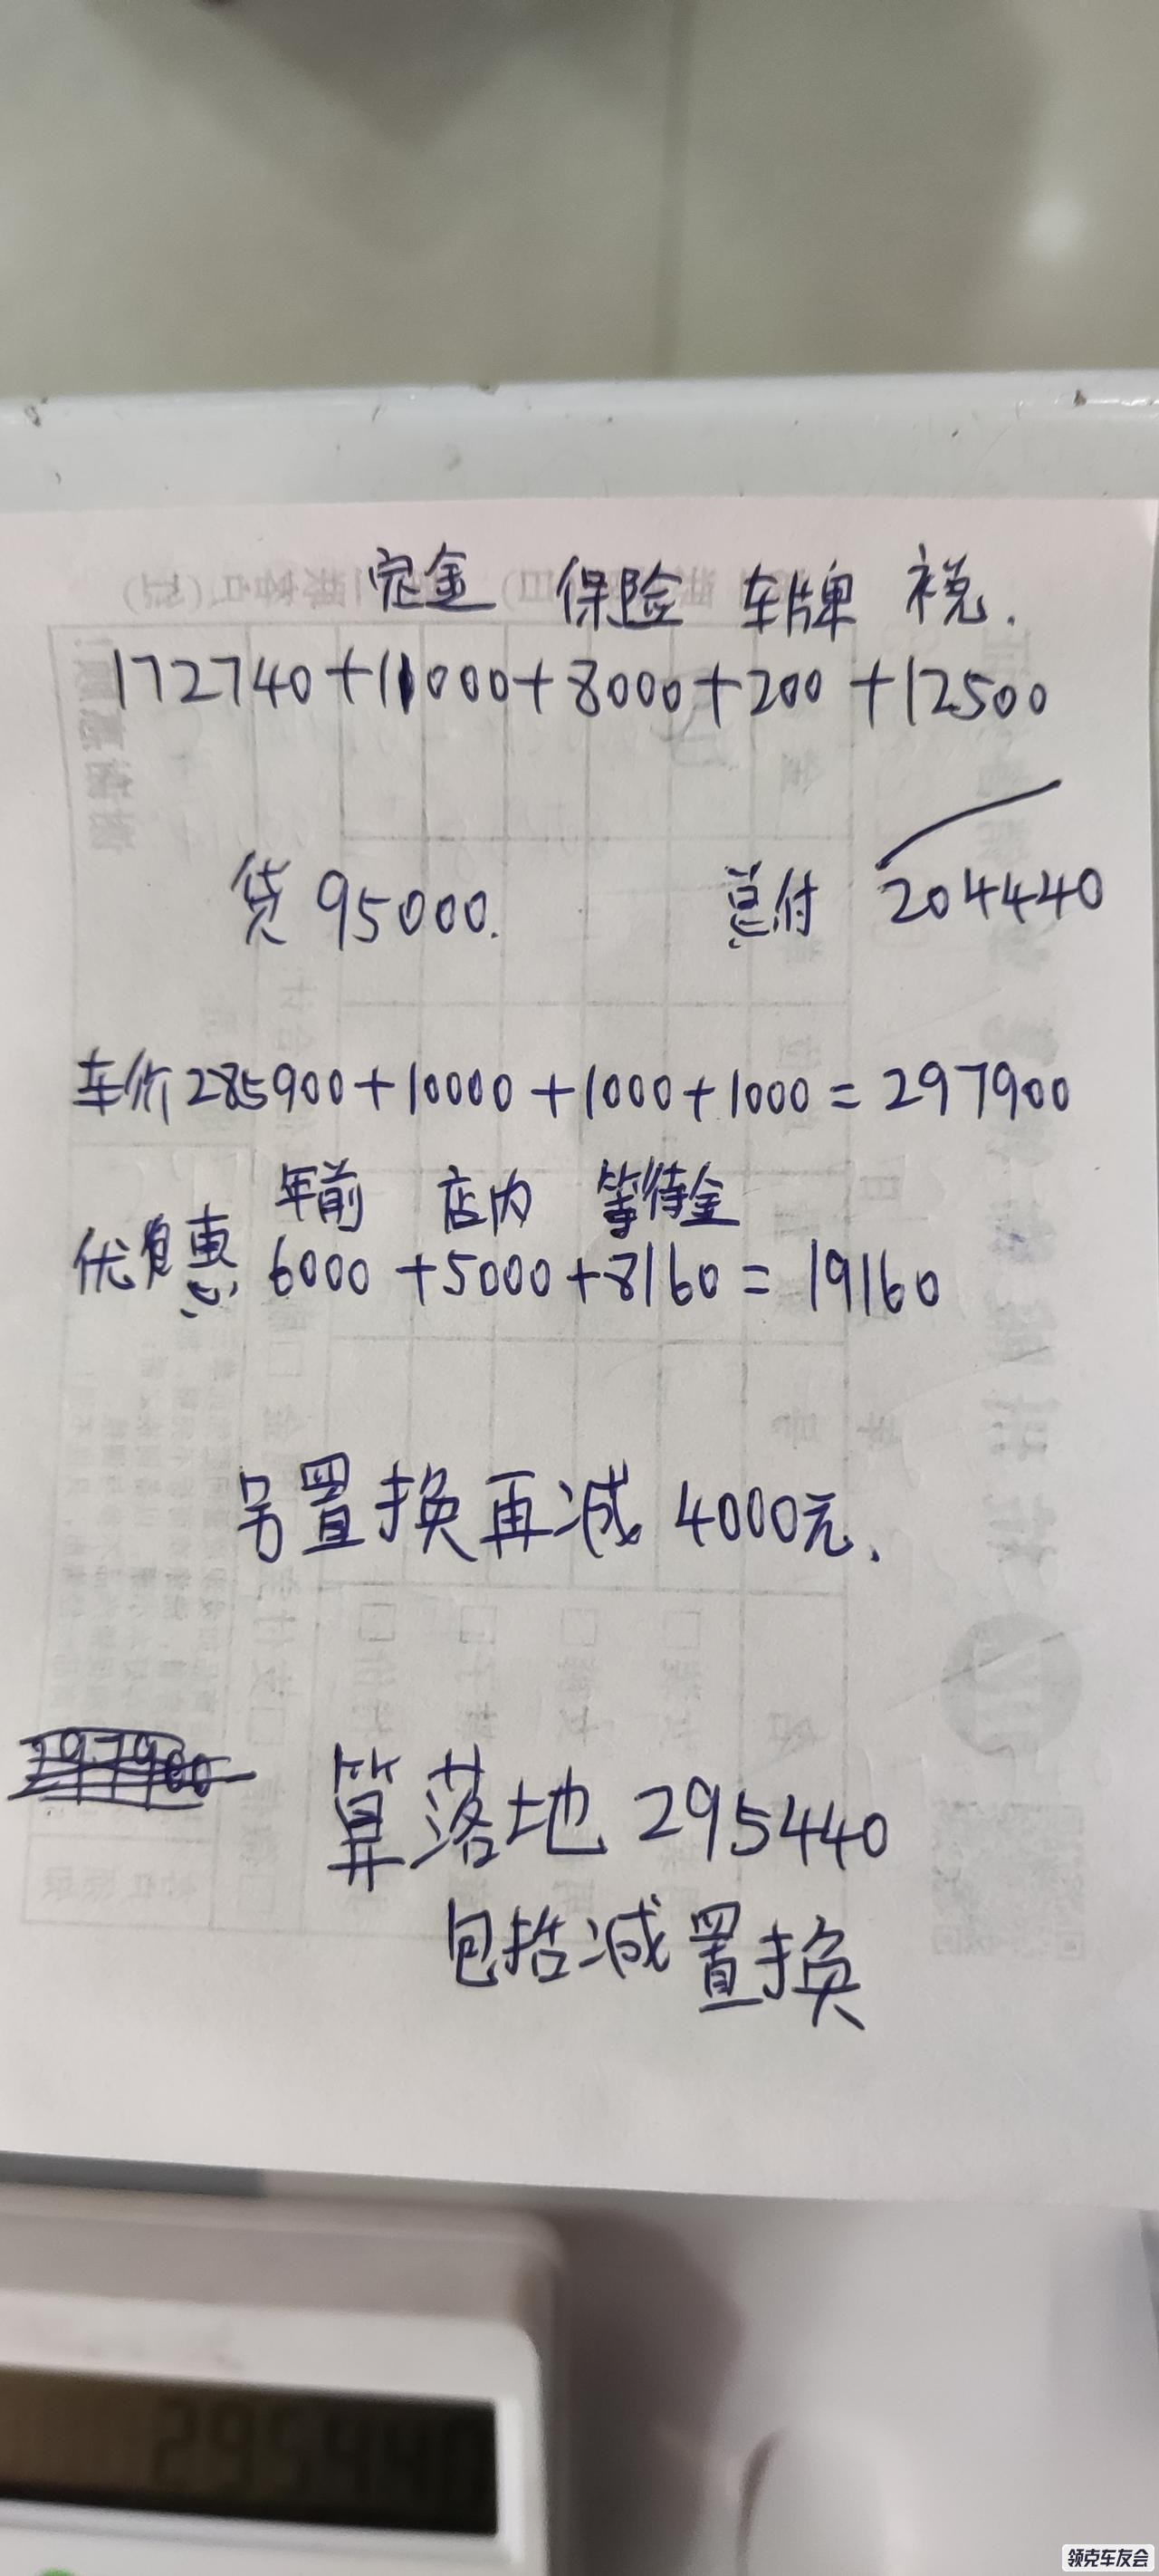 定金 保险 车牌 税.
172740+11000+8000+200+12500
贷95000. 总付 204440
车价285900+10000+1000+1000=297900
年前 店内 等待金
优惠 6000+5000+8160=19160
另置换再减4000元、
297900
算落地295440
包括减置换
295440
领克车友会